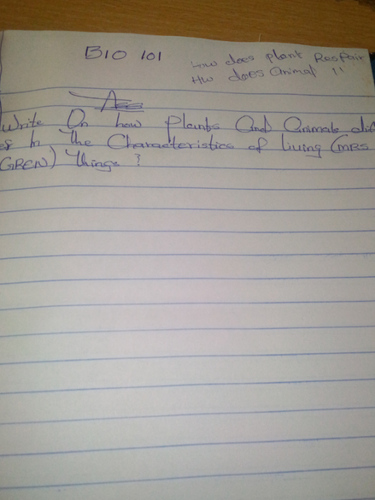 BIO 101
How does plant Respair
Hw does animal "
Ass
Write On how Plants and Animals
es in the Characteristics of living (MRS
GREN) things ?